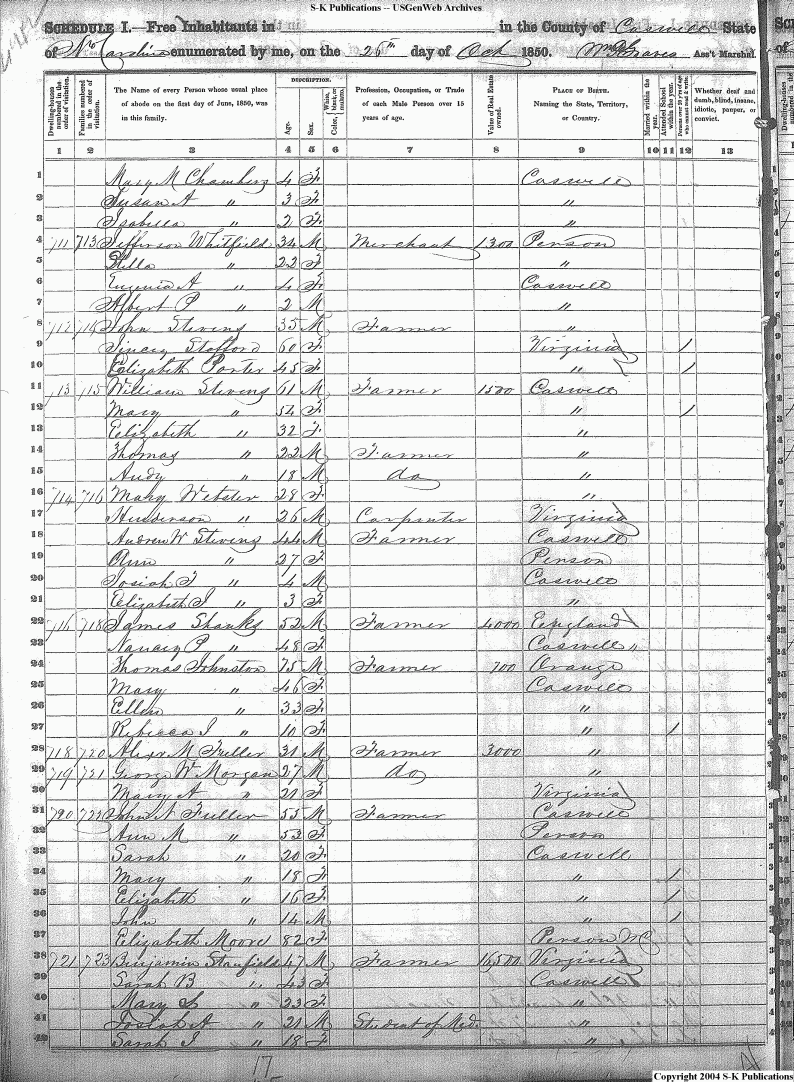 S-K Publications -- USGenWeb Archives
SCHEDULE I.—Free Inhabitants in in the County of Caswell State
of No Carolina enumerated by me, on the 25th day of Oct 1850. Wm Graves Ass't Marshal.
Dwelling-houses numbered in the order of visitation.
Families numbered in the order of visitation.
The Name of every Person whose usual place of abode on the first day of June, 1850, was in this family.
DESCRIPTION.
Age.
Sex.
Color, White, black, or mulatto.
Profession, Occupation, or Trade of each Male Person over 15 years of age.
Value of Real Estate owned.
PLACE OF BIRTH. Naming the State, Territory, or Country.
Married within the year.
Attended School within the year.
Persons over 20 y'rs of age who cannot read & write.
Whether deaf and dumb, blind, insane, idiotic, pauper, or convict.
1 2 3 4 5 6 7 8 9 10 11 12 13
1 Mary M Chambers 4 F Caswell
2 Susan A " 3 F "
3 Isabella " 2 F "
4 711 713 Jefferson Whitfield 34 M Merchant 1300 Person
5 Stella " 22 F "
6 Eugenia A " 4 F Caswell
7 Albert P " 2 M "
8 712 714 John Stevens 35 M Farmer "
9 Stafford 60 F Virginia /
10 Elizabeth Porter 45 F " /
11 713 715 William Stevens 61 M Farmer 1500 Caswell
12 Mary " 54 F " /
13 Elizabeth " 32 F "
14 Thomas " 22 M Farmer "
15 Andy " 18 M do "
16 714 716 Mary Webster 28 F "
17 Henderson " 26 M Carpenter Virginia
18 Andrew W Stevens 44 M Farmer Caswell
19 Ann " 27 F Person
20 Josiah T " 4 M Caswell
21 Elizabeth J " 3 F "
22 716 718 James Shanks 52 M Farmer 4000 England
23 Nancy P " 48 F Caswell "
24 Thomas Johnston 75 M Farmer 700 Orange
25 Mary " 46 F Caswell
26 Ellen " 33 F "
27 Rebecca J " 10 F " /
28 718 720 Alexr M Fuller 31 M Farmer 3000 "
29 719 721 George W Morgan 27 M do "
30 Mary A " 21 F Virginia
31 720 722 John N Fuller 55 M Farmer Caswell
32 Ann M " 53 F Person
33 Sarah " 20 F Caswell
34 Mary " 18 F " /
35 Elizabeth " 16 F " /
36 John " 14 M " /
37 Elizabeth Moore 82 F Person NC
38 721 723 Benjamin Stanfield 47 M Farmer 16,500 Virginia
39 Sarah B " 43 F Caswell
40 Mary S " 23 F "
41 Josiah A " 21 M Student of Med. "
42 Sarah J " 18 F "
17
Copyright 2004 S-K Publications